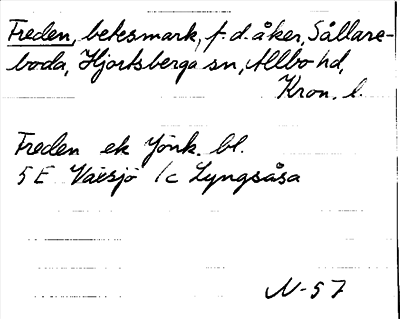 Freden, betesmark, f.d. åker, Sållare-
boda, Hjortsberga sn, Allbo hd,
Kron. l.
Freden ek Jönk. bl.
5 E Växsjö 1c Lyngsåsa
N-57